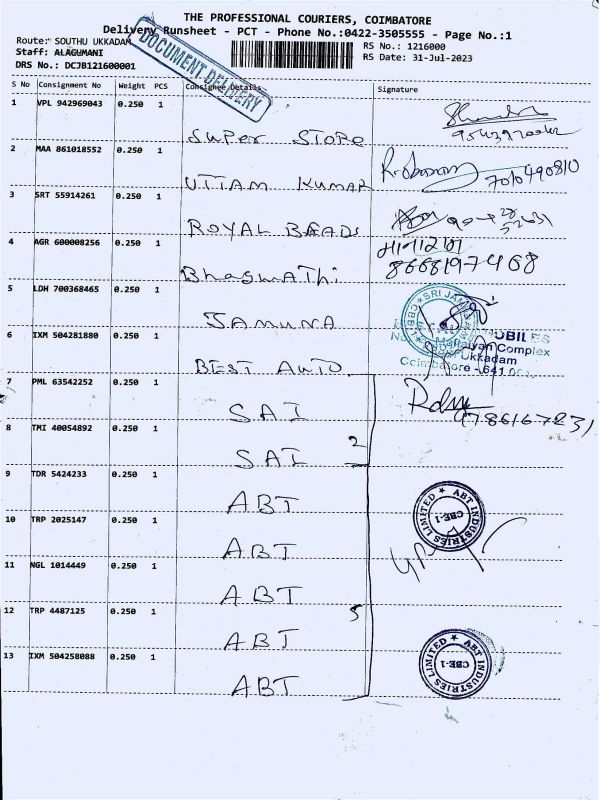 THE PROFESSIONAL COURIERS, COIMBATORE
Delivery Runsheet - PCT - Phone No.:0422-3505555 - Page No.:1
Route: SOUTHU UKKADAM
RS No.: 1216000
Staff: ALAGUMANI
RS Date: 31-Jul-2023
DRS No.: DCJB121600001
DOCUMENT DELIVERY
S No Consignment No Weight PCS Consignee Details Signature
1 VPL 942969043 0.250 1
Super Store
2 MAA 861018552 0.250 1
UTTAM KUMAR
7010490810
3 SRT 55914261 0.250 1
ROYAL BEADS
4 AGR 600008256 0.250 1
8668197468
Bhagwathi
5 LDH 700368465 0.250 1
JAMUNA
SRI JAM
MOBILES
Complex
Ukkadam
Coimbatore - 641 001
6 IXM 504281880 0.250 1
BEST AUTO
7 PML 63542252 0.250 1
SAI
9786167231
8 TMI 40054892 0.250 1
SAI 2
9 TDR 5424233 0.250 1
ABT
ABT INDUSTRIES LIMITED
CBE-1
10 TRP 2025147 0.250 1
ABT
11 NGL 1014449 0.250 1
ABT
12 TRP 4487125 0.250 1
5
ABT
13 IXM 504258088 0.250 1
ABT
ABT INDUSTRIES LIMITED
CBE-1